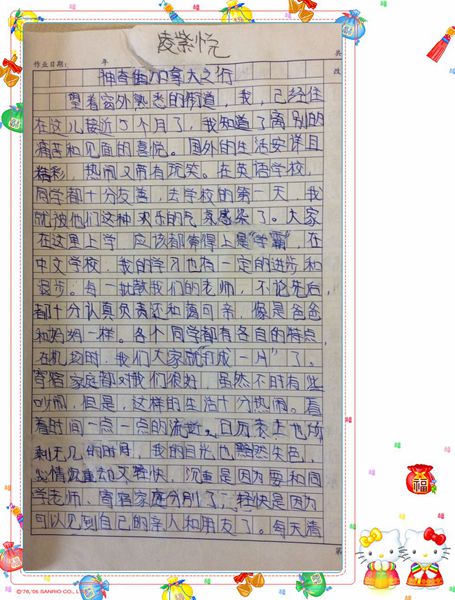 凌紫悦
作业日期: 年
共
改
神奇的加拿大之行
望着窗外熟悉的街道,我,已经住
在这儿接近5个月了,我知道了离别的
痛苦和见面的喜悦。国外的生活安详且
精彩,热闹又带有玩笑。在英语学校,
同学都十分友善,去学校的第一天,我
就被他们这种欢乐的气氛感染了。大家
在这里上学,应该都算得上是“学霸”,在
中文学校,我的学习也有一定的进步和
退步。每一批教我们的老师,不论先后,
都十分认真负责还和蔼可亲,像是爸爸
和妈妈一样。各个同学都有各自的特点,
在机场时,我们大家就“打成一片”了。
寄宿家庭都对我们很好,虽然不时有些
吵闹,但是,这样的生活十分热闹。看
着时间一点一点的流逝,日历表上也所
剩无几的时间,我的目光也黯然失色,
心情沉重却又轻快,沉重是因为要和同
学老师、寄宿家庭分别了,轻快是因为
可以见到自己的亲人和朋友了。每天清
第
©'76,'05 SANRIO CO., L
福